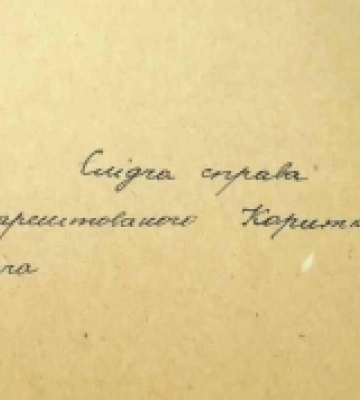 Слідча справа
арештованого Корытк
га